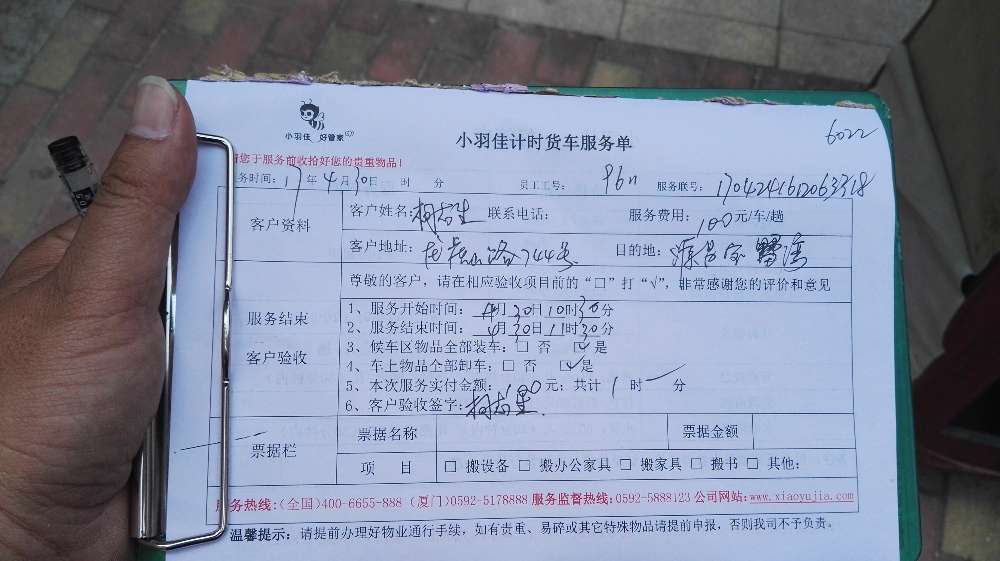 小羽佳 好管家
小羽佳计时货车服务单
6022
请您于服务前收拾好您的贵重物品!
务时间: 17年4月30日 时 分 员工工号: 96n 服务联号: 1704241602063318
客户资料
客户姓名: 联系电话: 服务费用: 100元/车/趟
客户地址: 路744号 目的地:
尊敬的客户,请在相应验收项目前的“□”打“√”,非常感谢您的评价和意见
服务结束
客户验收
1、服务开始时间: 4月30日10时30分
2、服务结束时间: 4月30日11时30分
3、候车区物品全部装车: □ 否 ☑是
4、车上物品全部卸车: □ 否 ☑是
5、本次服务实付金额: 100元; 共计 1 时一分
6、客户验收签字:
票据栏
票据名称 票据金额
项 目 □ 搬设备 □ 搬办公家具 □ 搬家具 □ 搬书 □ 其他:
服务热线:(全国)400-6655-888 (厦门)0592-5178888 服务监督热线:0592-5888123 公司网站:www.xiaoyujia.com
温馨提示: 请提前办理好物业通行手续,如有贵重、易碎或其它特殊物品请提前申报,否则我司不予负责。